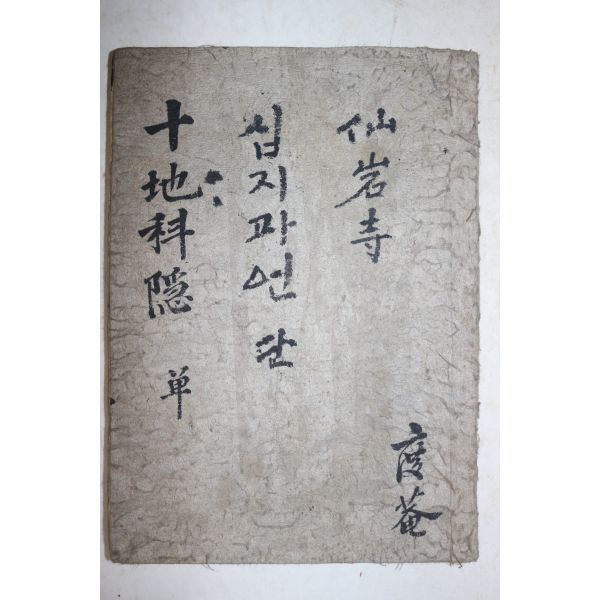 度菴
仙岩寺
십지과언 단
十地科隠 単